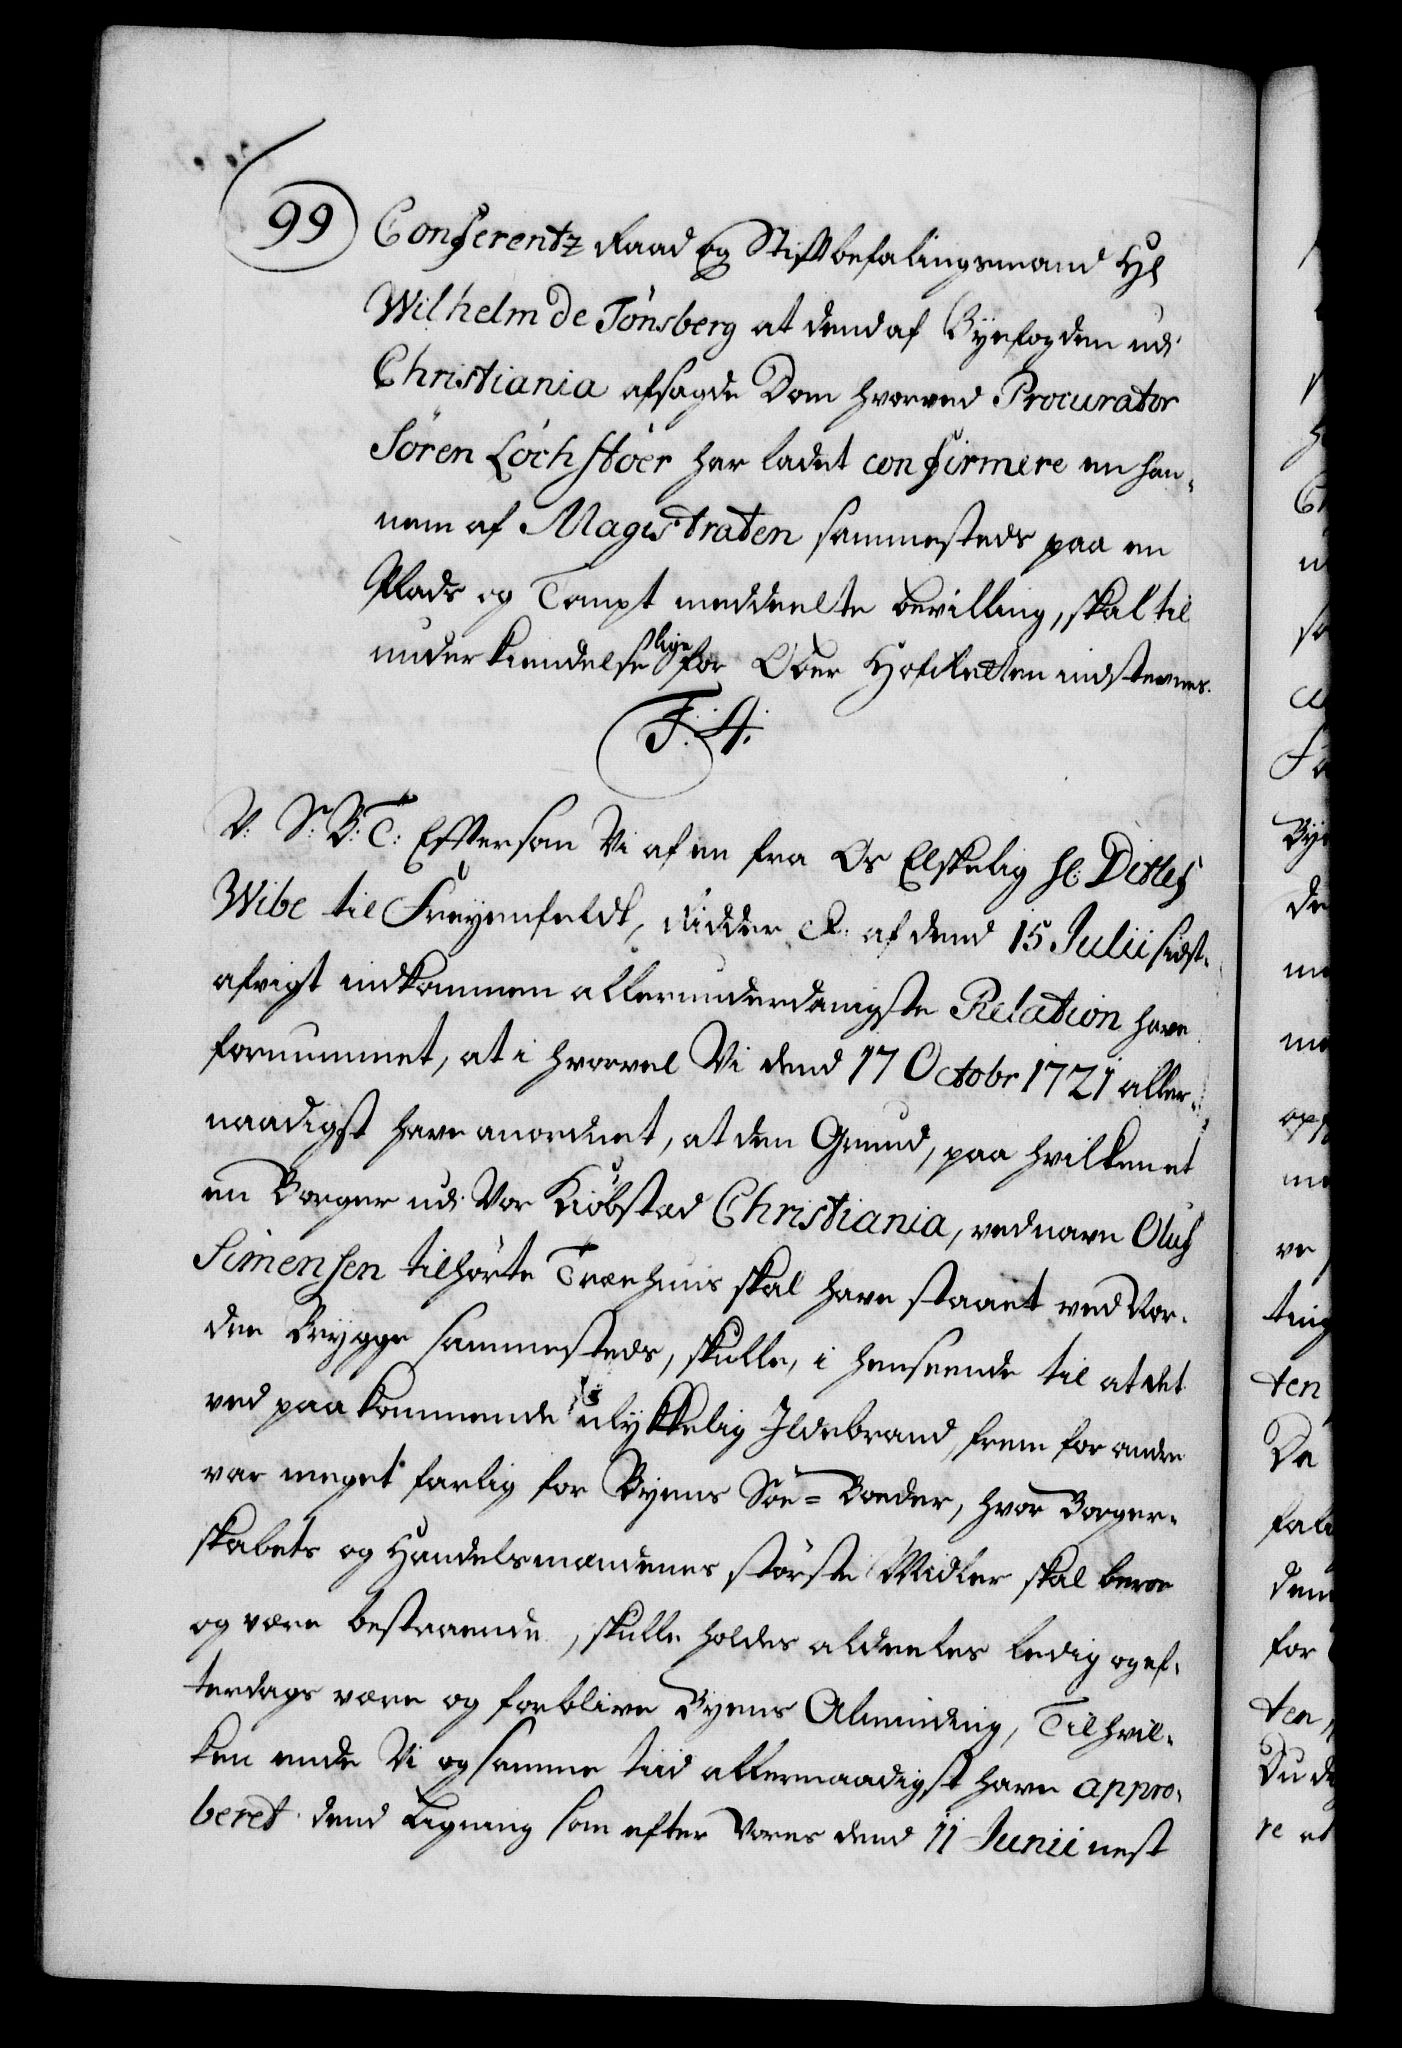 99
Conferentz Raad og Stiftbefalingsmand Hl
Wilhelm de Tönsberg at dend af Byefogden udi
Christiania afsagde Dom hvorved Procurator
Sören Löchstöer har ladet confirmere en han-
nem af Magistraten sammesteds paa en
Plads og Tompt meddeelte bevilling, skal til
underkiendelse lige for Ober HofRetten indstevnes.
F: 4:
V: S: B: T: Eftersom Vi af en fra Os Elskelig hl: Ditlef
Wibe til Freyenfeldt, Ridder &. af dend 15 Julii sidst-
afvigt indkommen allerunderdanigste Relation have
fornummet, at i hvorvel Vi dend 17 Octobr 1721 aller-
naadigst have anordnet, at den Grund, paa hvilken et
en Borger udi Vor Kiöbstad Christiania, ved navn Oluf
Simensen tilhörte Træehuus skal have staaet ved Nor-
dre Brygge sammesteds, skulle, i henseende til at det
ved paakommende ulykkelig Ildebrand, frem for andre
var meget farlig for Byens Söe-Boeder, hvor Borger-
skabets og Handelsmændenes störste Midler skal beroe
og være bestaaende, skulle holdes aldeeles ledig og ef-
terdags være og forblive Byens Alminding, Til hvil-
ken ende Vi og samme tiid allernaadigst have appro-
beret dend Ligning som efter Vores dend 11 Junii nest